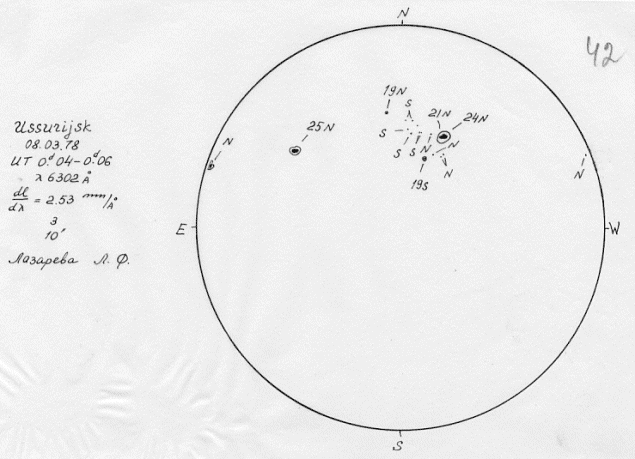 N
42
Ussurijsk
08.03.78
UT 0ᵈ04-0ᵈ06
λ 6302 Å
dl/dλ = 2.53 mm/Å
3
10'
Лазарева Л. Ф.
19N
S
21N
24N
25N
N
S
S
S
N
N
19S
N
N
E
W
S